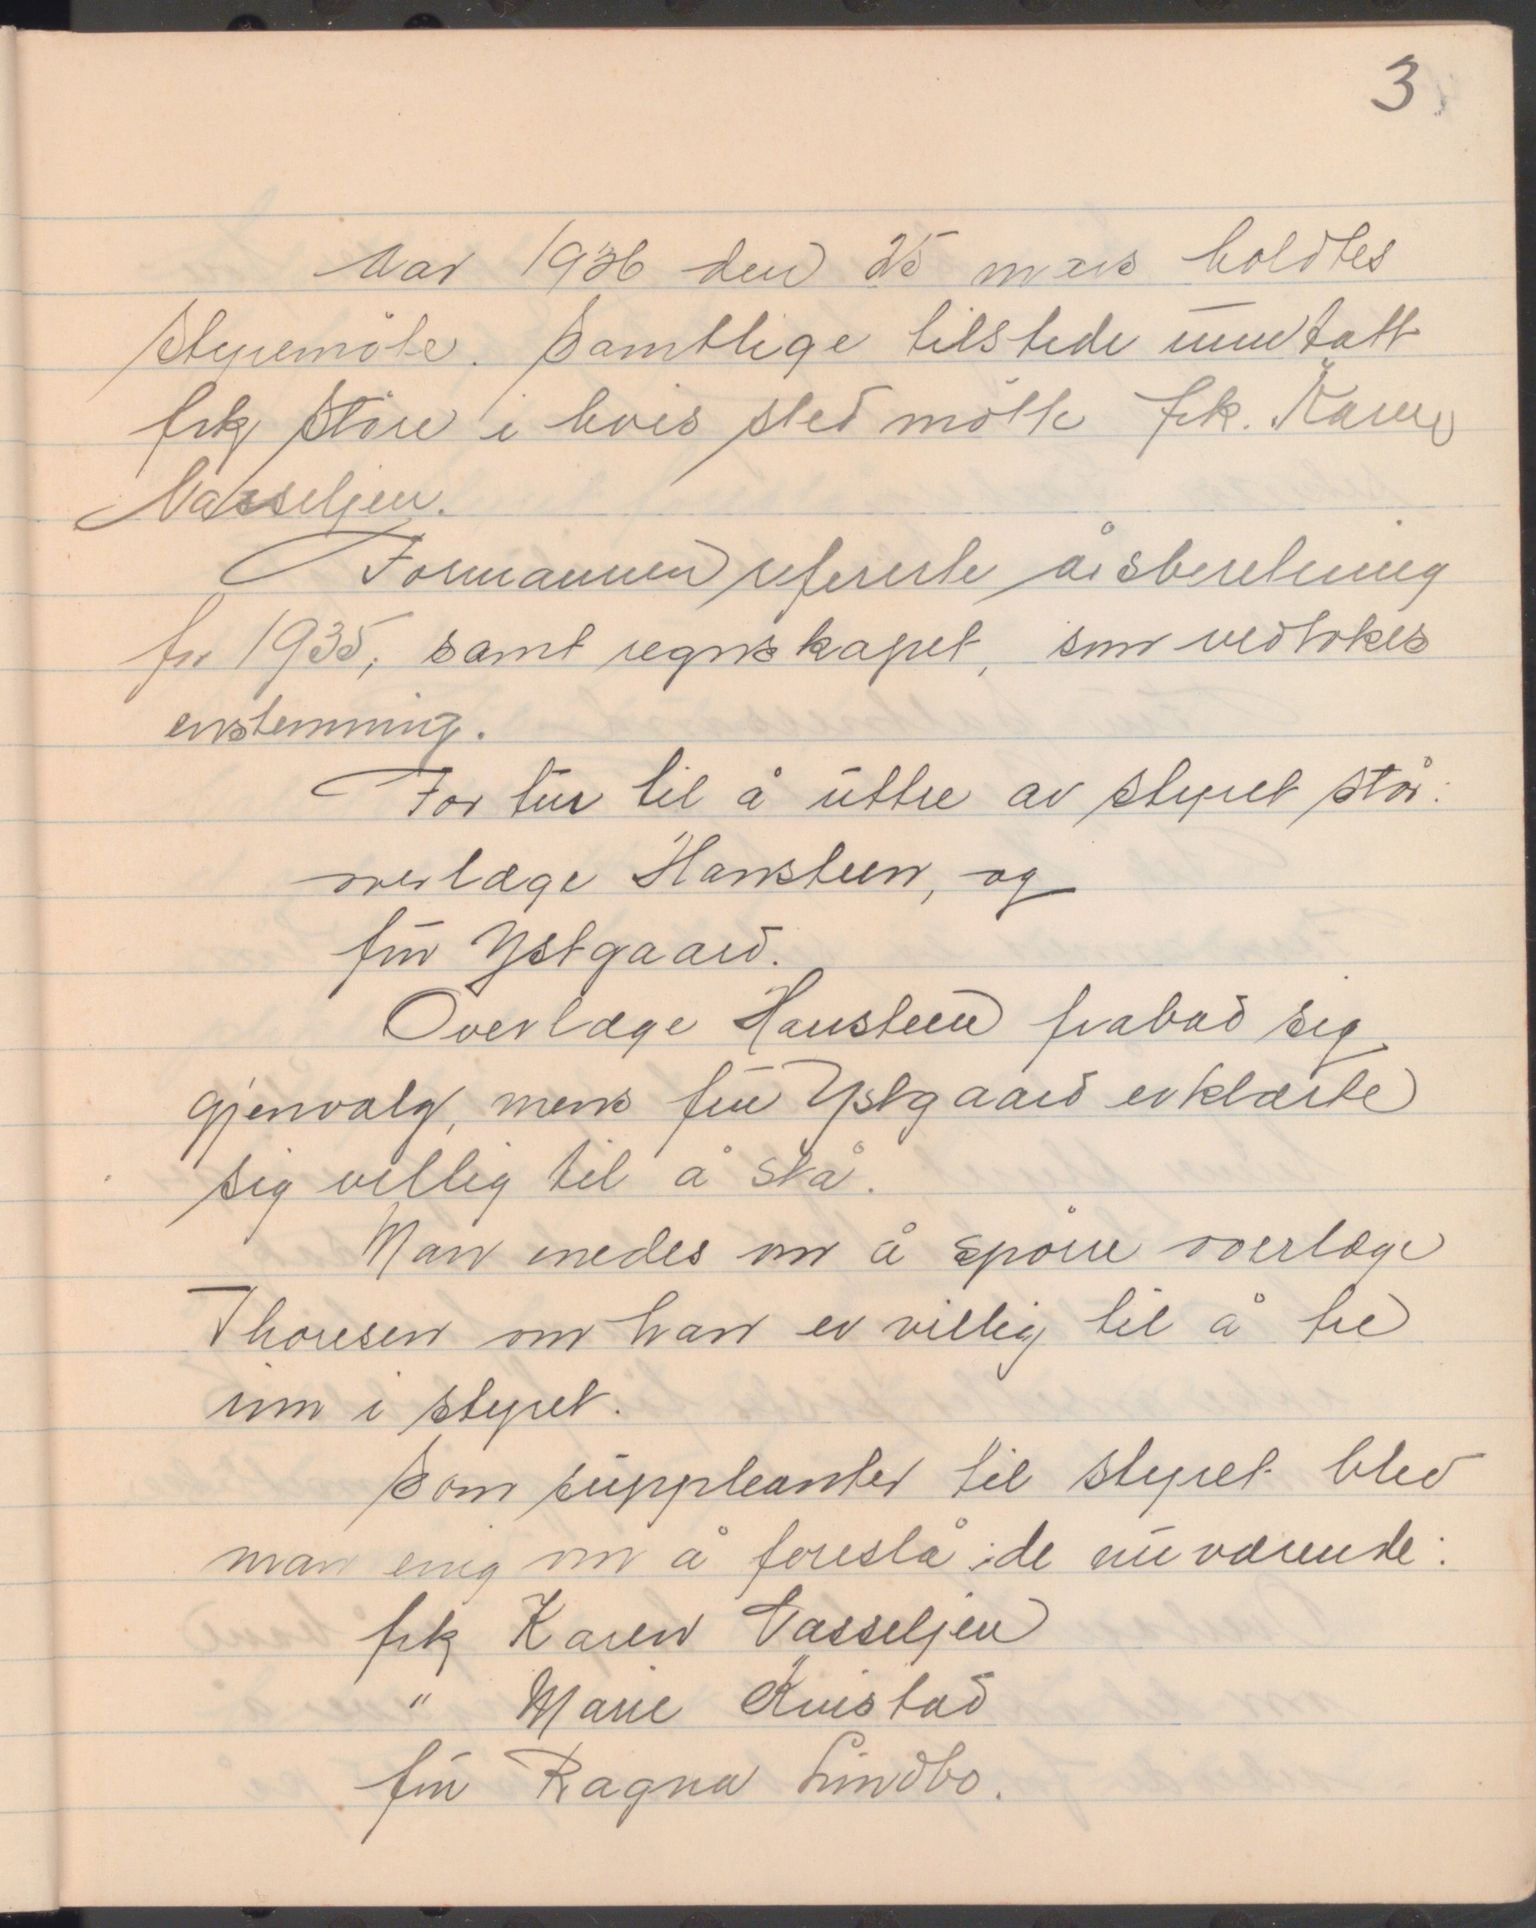 3
Aar 1936 den 25 mars holdtes
styremöte. Samtlige tilstede unntatt
frk Störe i hvis sted mötte frk. Karen
Vasseljen.
Formannen refererte årsberetning
for 1935, samt regnskapet, som vedtokes
enstemmig.
For tur til å uttre av styret står:
overlæge Hansteen, og
fru Ystgaard.
Overlæge Hansteen frabad sig
gjenvalg, mens fru Ystgaard erklærte
sig villig til å stå.
Man enedes om å spörre overlæge
Thoresen om han er villig til å tre
inn i styret.
Som suppleanter til styret blev
man enig om å foreslå de nuværende:
frk Karen Vasseljen
" Marie Kvistad
fru Ragna Lindbo.